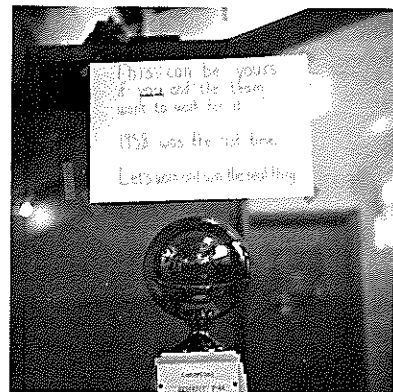 This can be yours
if you and the team
want to work for it
1953 was the last time.
Let's work and win the next thing